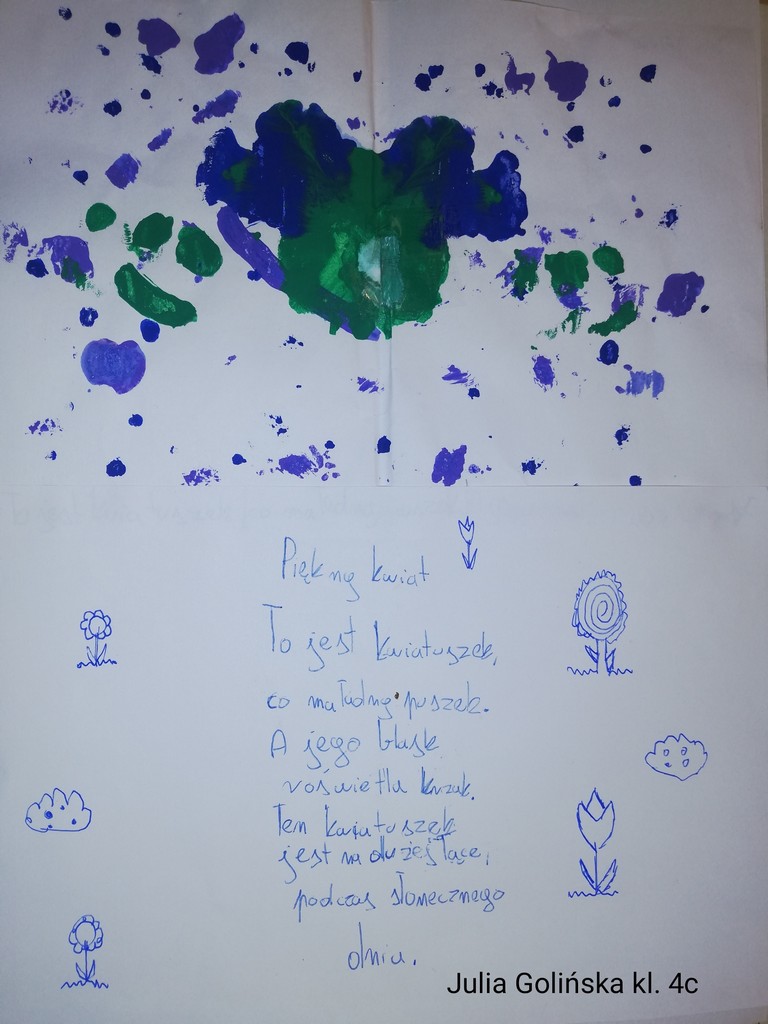 Piękny kwiat
To jest kwiatuszek,
co ma ładny puszek.
A jego blask
rozświetla krzak.
Ten kwiatuszek
jest na dużej łące,
podczas słonecznego
dnia.
Julia Golińska kl. 4c